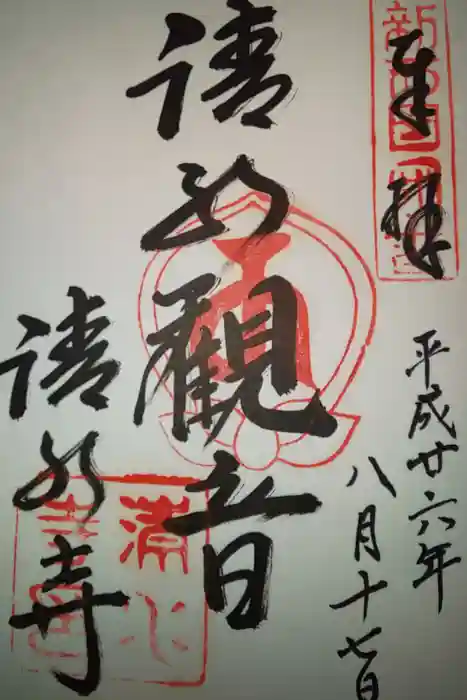 奉拝
新西国
平成廿六年
八月十七日
清水観音
清水寺
清水
寺印